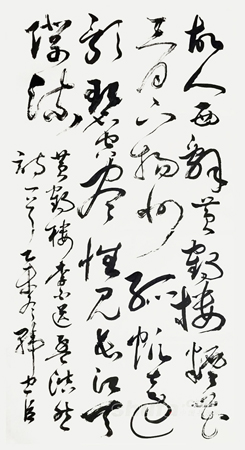 故人西辭黄鶴樓煙花
三月下揚州孤帆遠
影碧空盡惟見長江天
際流
黄鶴樓李白送孟浩然
詩一首